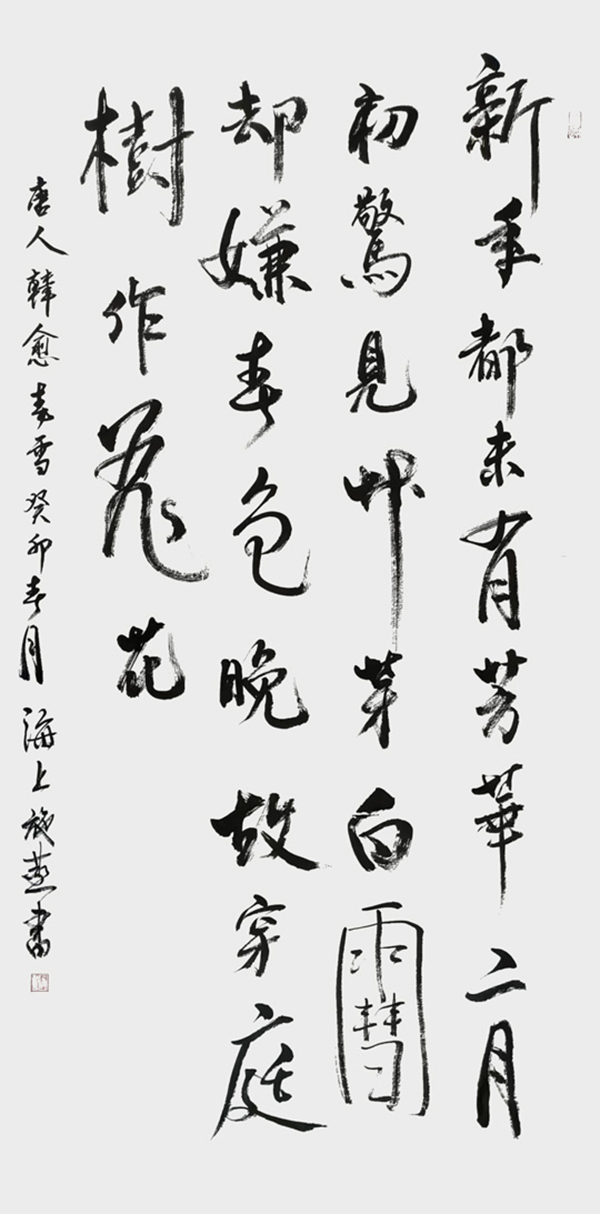 新年都未有芳華二月
初驚見艸芽白䨮
却嫌春色晚故穿庭
樹作飛花
唐人韓愈春雪癸卯春月 海上施燕書